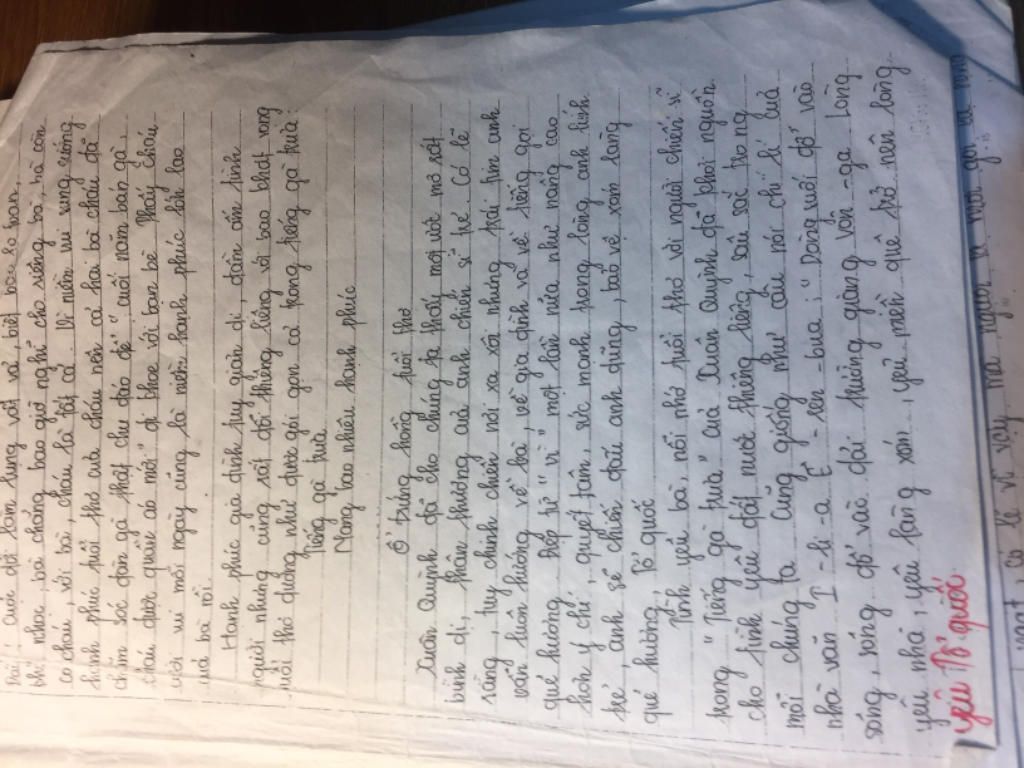 bài, cuộc đời lam lụng vất vả, biết bao khó khăn,
khổ nhọc, bà chẳng bao giờ nghĩ cho riêng bà, bà còn
có cháu, với bà, cháu là tất cả. Vì niềm vui sung sướng
hạnh phúc tuổi thơ của cháu nên cả hai bà cháu đã
chăm sóc đàn gà thật chu đáo để "cuối năm bán gà,
cháu được quần áo mới" đi khoe với bạn bè. Thấy cháu
cười vui mỗi ngày cũng là niềm hạnh phúc lớn lao
của bà rồi.
Hạnh phúc gia đình tuy giản dị, đầm ấm tình
người nhưng cũng rất đỗi thiêng liêng với bao khát vọng
tuổi thơ dường như được gói gọn cả trong tiếng gà trưa:
Tiếng gà trưa
Mang bao nhiêu hạnh phúc
Ổ trứng hồng tuổi thơ
Xuân Quỳnh đã cho chúng ta thấy mọi ước mơ rất
bình dị, thân thương của anh chiến sĩ trẻ. Có lẽ
rằng, tuy chinh chiến nơi xa xôi nhưng trái tim anh
vẫn luôn hướng về bà, về gia đình và về tiếng gọi
quê hương. Điệp từ "vì" một lần nữa như nâng cao
hơn ý chí, quyết tâm, sức mạnh trong lòng anh lính
trẻ, anh sẽ chiến đấu anh dũng, bảo vệ xóm làng
quê hương, Tổ quốc
Tình yêu bà, nỗi nhớ tuổi thơ với người chiến sĩ
trong "Tiếng gà trưa" của Xuân Quỳnh đã khơi nguồn
cho tình yêu đất nước thiêng liêng, sâu sắc trong
mỗi chúng ta cũng giống như câu nói chí lí của
nhà văn I-li-a Ê-ren-bua: "Dòng suối đổ vào
sông, sông đổ vào dải trường giang Vôn-ga. Lòng
yêu nhà, yêu làng xóm, yêu miền quê trở nên lòng
yêu Tổ quốc.
có lẽ vì vậy mà